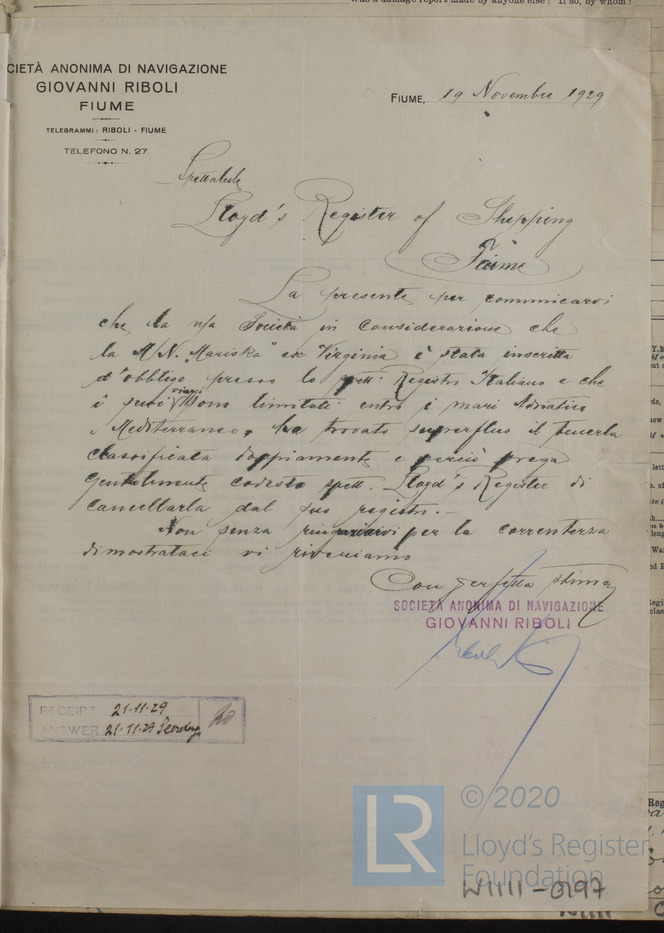 Was a damage report made by anyone else? If so, by whom?
CIETÀ ANONIMA DI NAVIGAZIONE
GIOVANNI RIBOLI
FIUME
TELEGRAMMI: RIBOLI - FIUME
TELEFONO N. 27
FIUME, 19 Novembre 1929
Spettabile
Lloyd's Register of Shipping
Fiume
La presente per comunicarvi
che la n/a Società in considerazione che
la M/N. "Mariska" ex Virginia è stata inscritta
d'obbligo presso lo spett. Registro Italiano e che
i suoi viaggi sono limitati entro i mari Adriatico
Mediterraneo, ha trovato superfluo il tenerla
classificata doppiamente e perciò prega
gentilmente codesto spett. Lloyd's Register di
cancellarla dal suo registro.-
Non senza ringraziarvi per la correntezza
dimostrataci vi riveriamo
Con perfetta stima
SOCIETÀ ANONIMA DI NAVIGAZIONE
GIOVANNI RIBOLI
RECEIPT 21-11-29
ANSWER 21-11-29 Secretary
© 2020
LR
Lloyd's Register
Foundation
W1111-0197